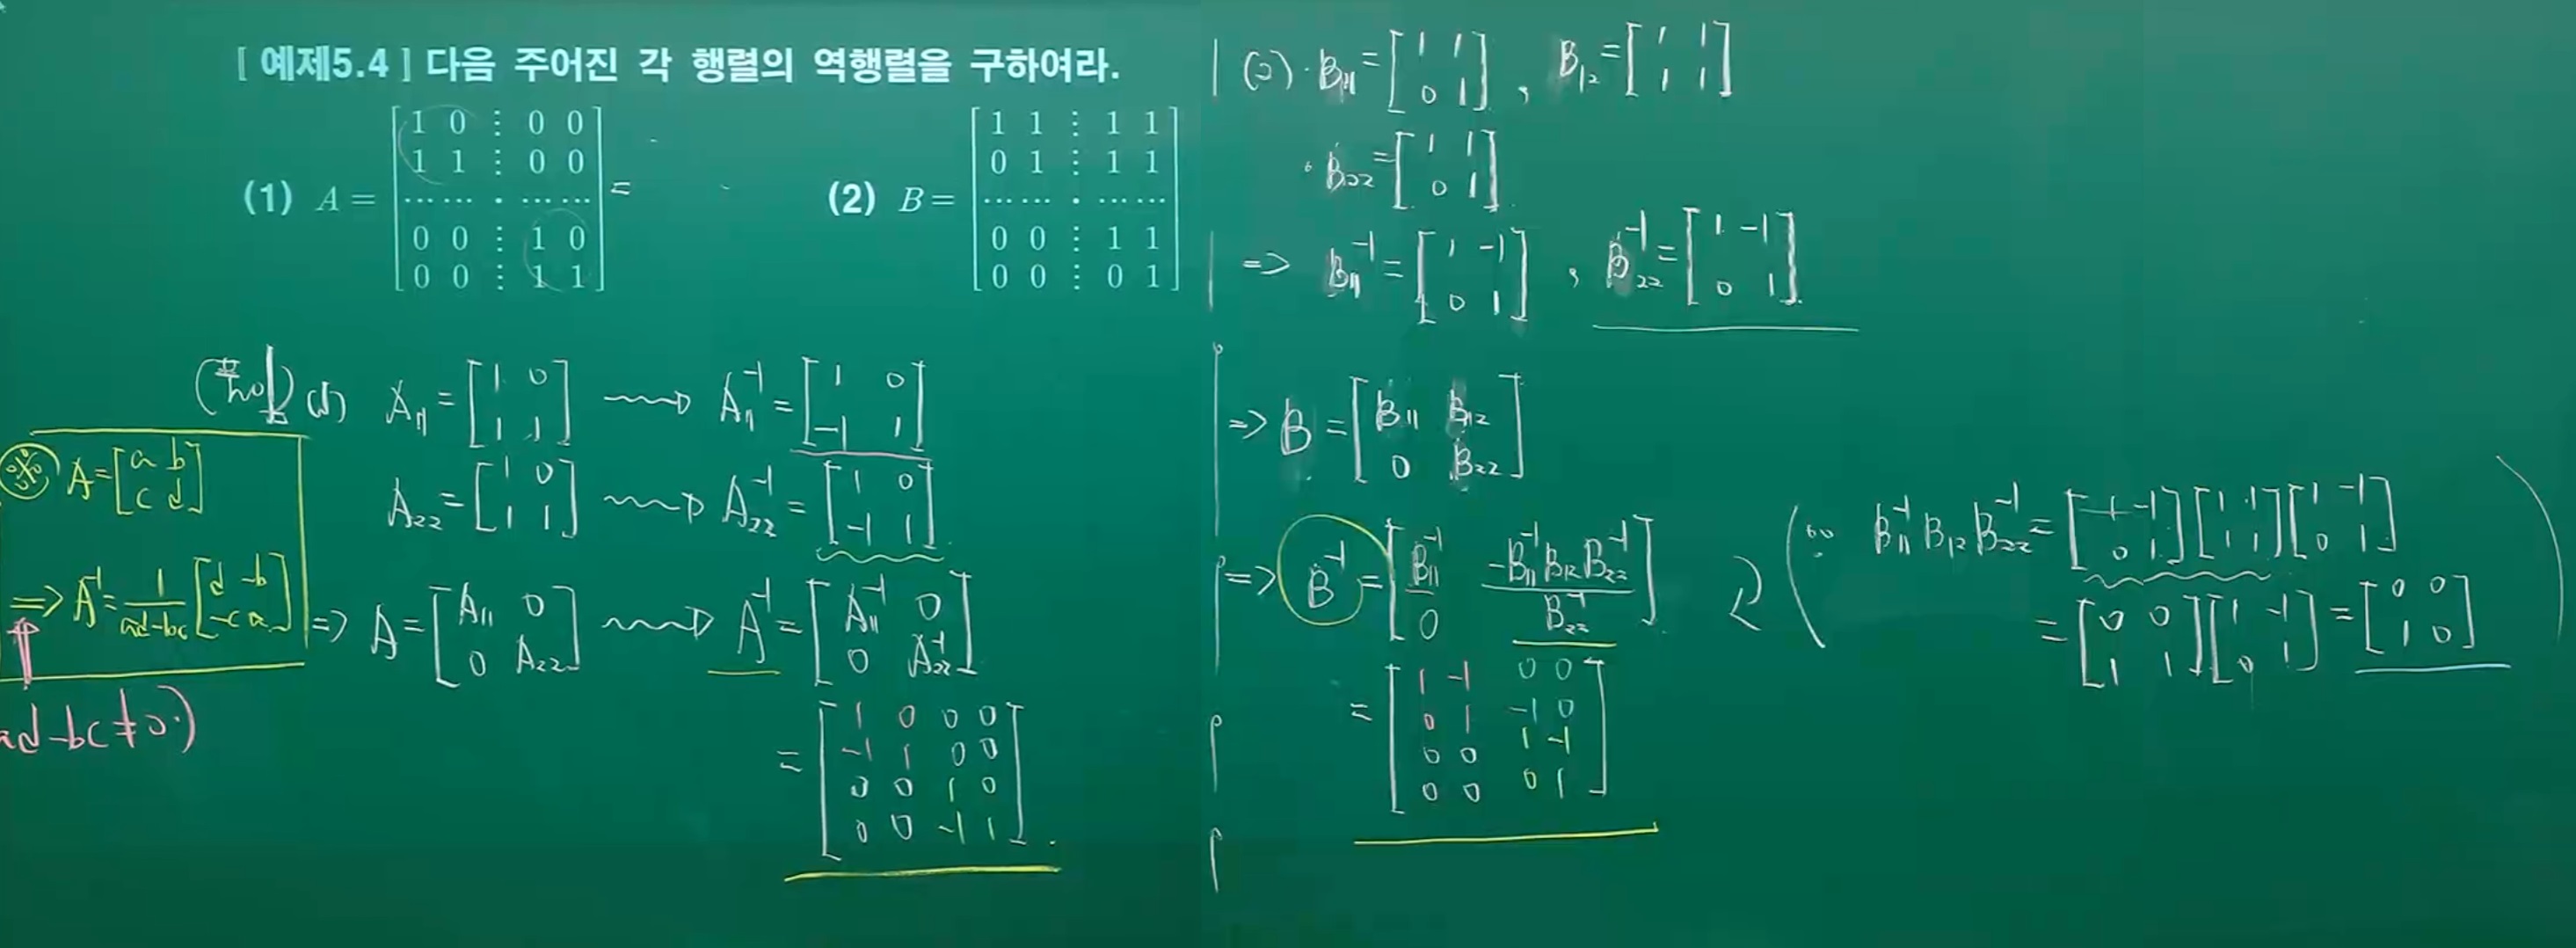 [ 예제5.4 ] 다음 주어진 각 행렬의 역행렬을 구하여라.
(1) A =
1 0 ⋮ 0 0
1 1 ⋮ 0 0
⋯⋯ · ⋯⋯
0 0 ⋮ 1 0
0 0 ⋮ 1 1
=
(2) B =
1 1 ⋮ 1 1
0 1 ⋮ 1 1
⋯⋯ · ⋯⋯
0 0 ⋮ 1 1
0 0 ⋮ 0 1
(풀이) (1) A₁₁ = [1 0; 1 1] ⟿ A₁₁⁻¹ = [1 0; -1 1]
A₂₂ = [1 0; 1 1] ⟿ A₂₂⁻¹ = [1 0; -1 1]
⇒ A = [A₁₁ 0; 0 A₂₂] ⟿ A⁻¹ = [A₁₁⁻¹ 0; 0 A₂₂⁻¹]
= [1 0 0 0; -1 1 0 0; 0 0 1 0; 0 0 -1 1]
※ A = [a b; c d]
⇒ A⁻¹ = 1/(ad-bc) [d -b; -c a]
ad-bc ≠ 0.)
(2) · B₁₁ = [1 1; 0 1], B₁₂ = [1 1; 1 1]
· B₂₂ = [1 1; 0 1]
⇒ B₁₁⁻¹ = [1 -1; 0 1], B₂₂⁻¹ = [1 -1; 0 1]
⇒ B = [B₁₁ B₁₂; 0 B₂₂]
⇒ B⁻¹ = [B₁₁⁻¹ -B₁₁⁻¹B₁₂B₂₂⁻¹; 0 B₂₂⁻¹]
= [1 -1 0 0; 0 1 -1 0; 0 0 1 -1; 0 0 0 1]
(∵ B₁₁⁻¹B₁₂B₂₂⁻¹ = [1 -1; 0 1][1 1; 1 1][1 -1; 0 1]
= [0 0; 1 1][1 -1; 0 1] = [0 0; 1 0])